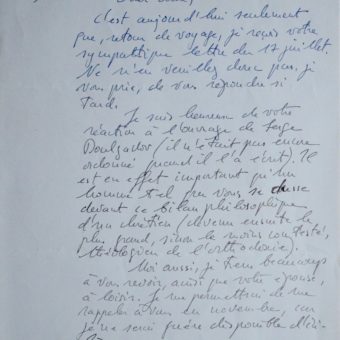 C'est aujourd'hui seulement
que, retour de voyage, je reçois votre
sympathique lettre du 17 juillet.
Ne m'en veuillez donc pas, je
vous prie, de vous répondre si
tard.
Je suis heureux de votre
réaction à l'ouvrage de Serge
Boulgakov (il n'était pas encore
ordonné quand il l'a écrit). Il
est en effet important qu'un
homme tel que vous se
devant ce bilan philosophique
d'un chrétien (devenu ensuite le
plus grand, sinon le moins contesté,
théologien de l'orthodoxie).
Moi aussi, je tiens beaucoup
à vous revoir, ainsi que votre épouse,
à loisir. Je me permettrai de me
rappeler à vous en novembre, car
je ne serai guère disponible d'ici-